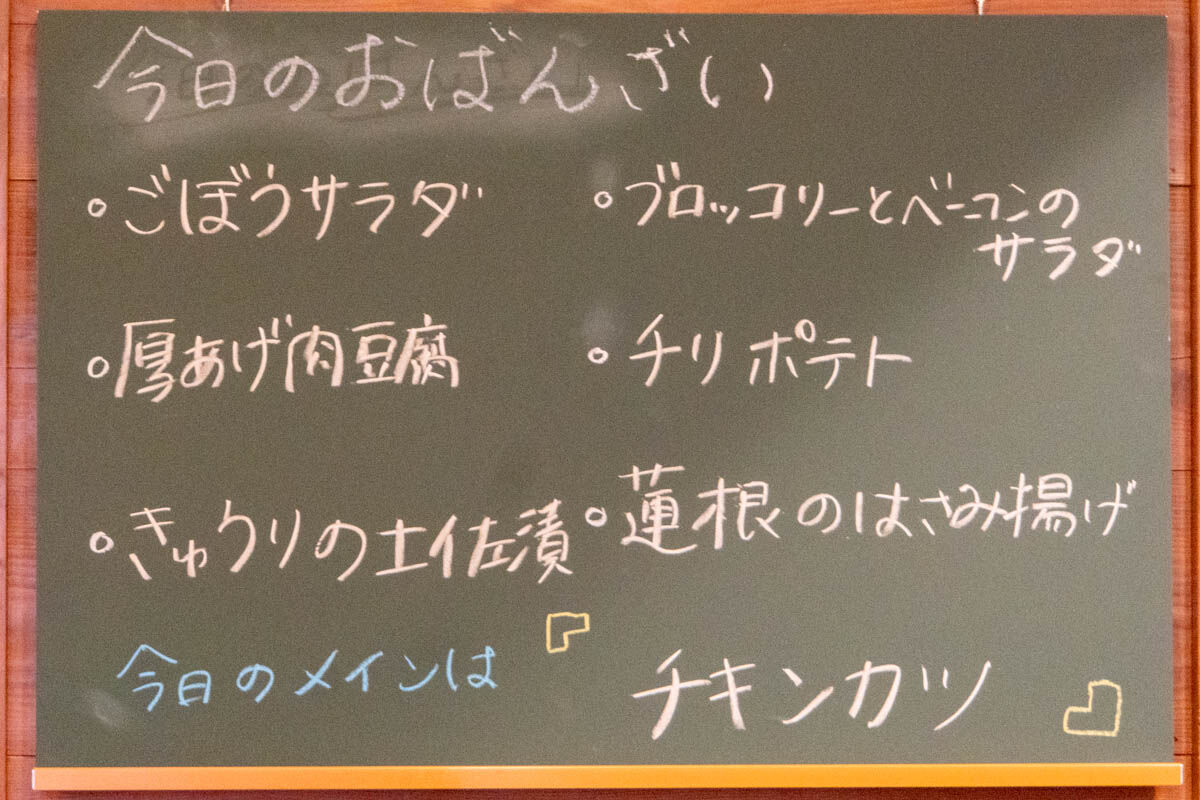 今日のおばんざい
・ごぼうサラダ
・厚あげ肉豆腐
・きゅうりの土佐漬
・ブロッコリーとベーコンの
サラダ
・チリポテト
・蓮根のはさみ揚げ
今日のメインは
チキンカツ